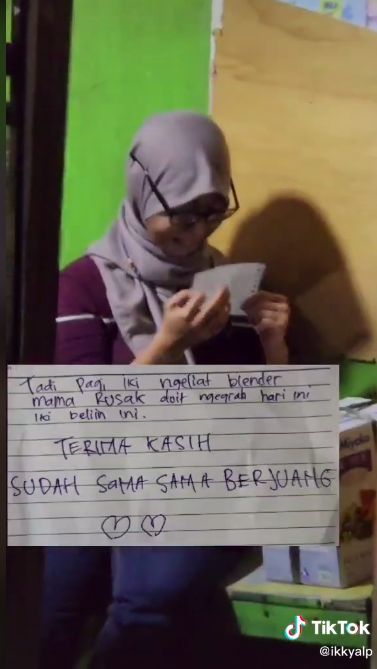 Miyako
Tadi Pagi Iki ngeliat blender
mama Rusak doit ngegrab hari ini
Iki beliin ini.
TERIMA KASIH
SUDAH SAMA SAMA BERJUANG
TikTok
@ikkyalp